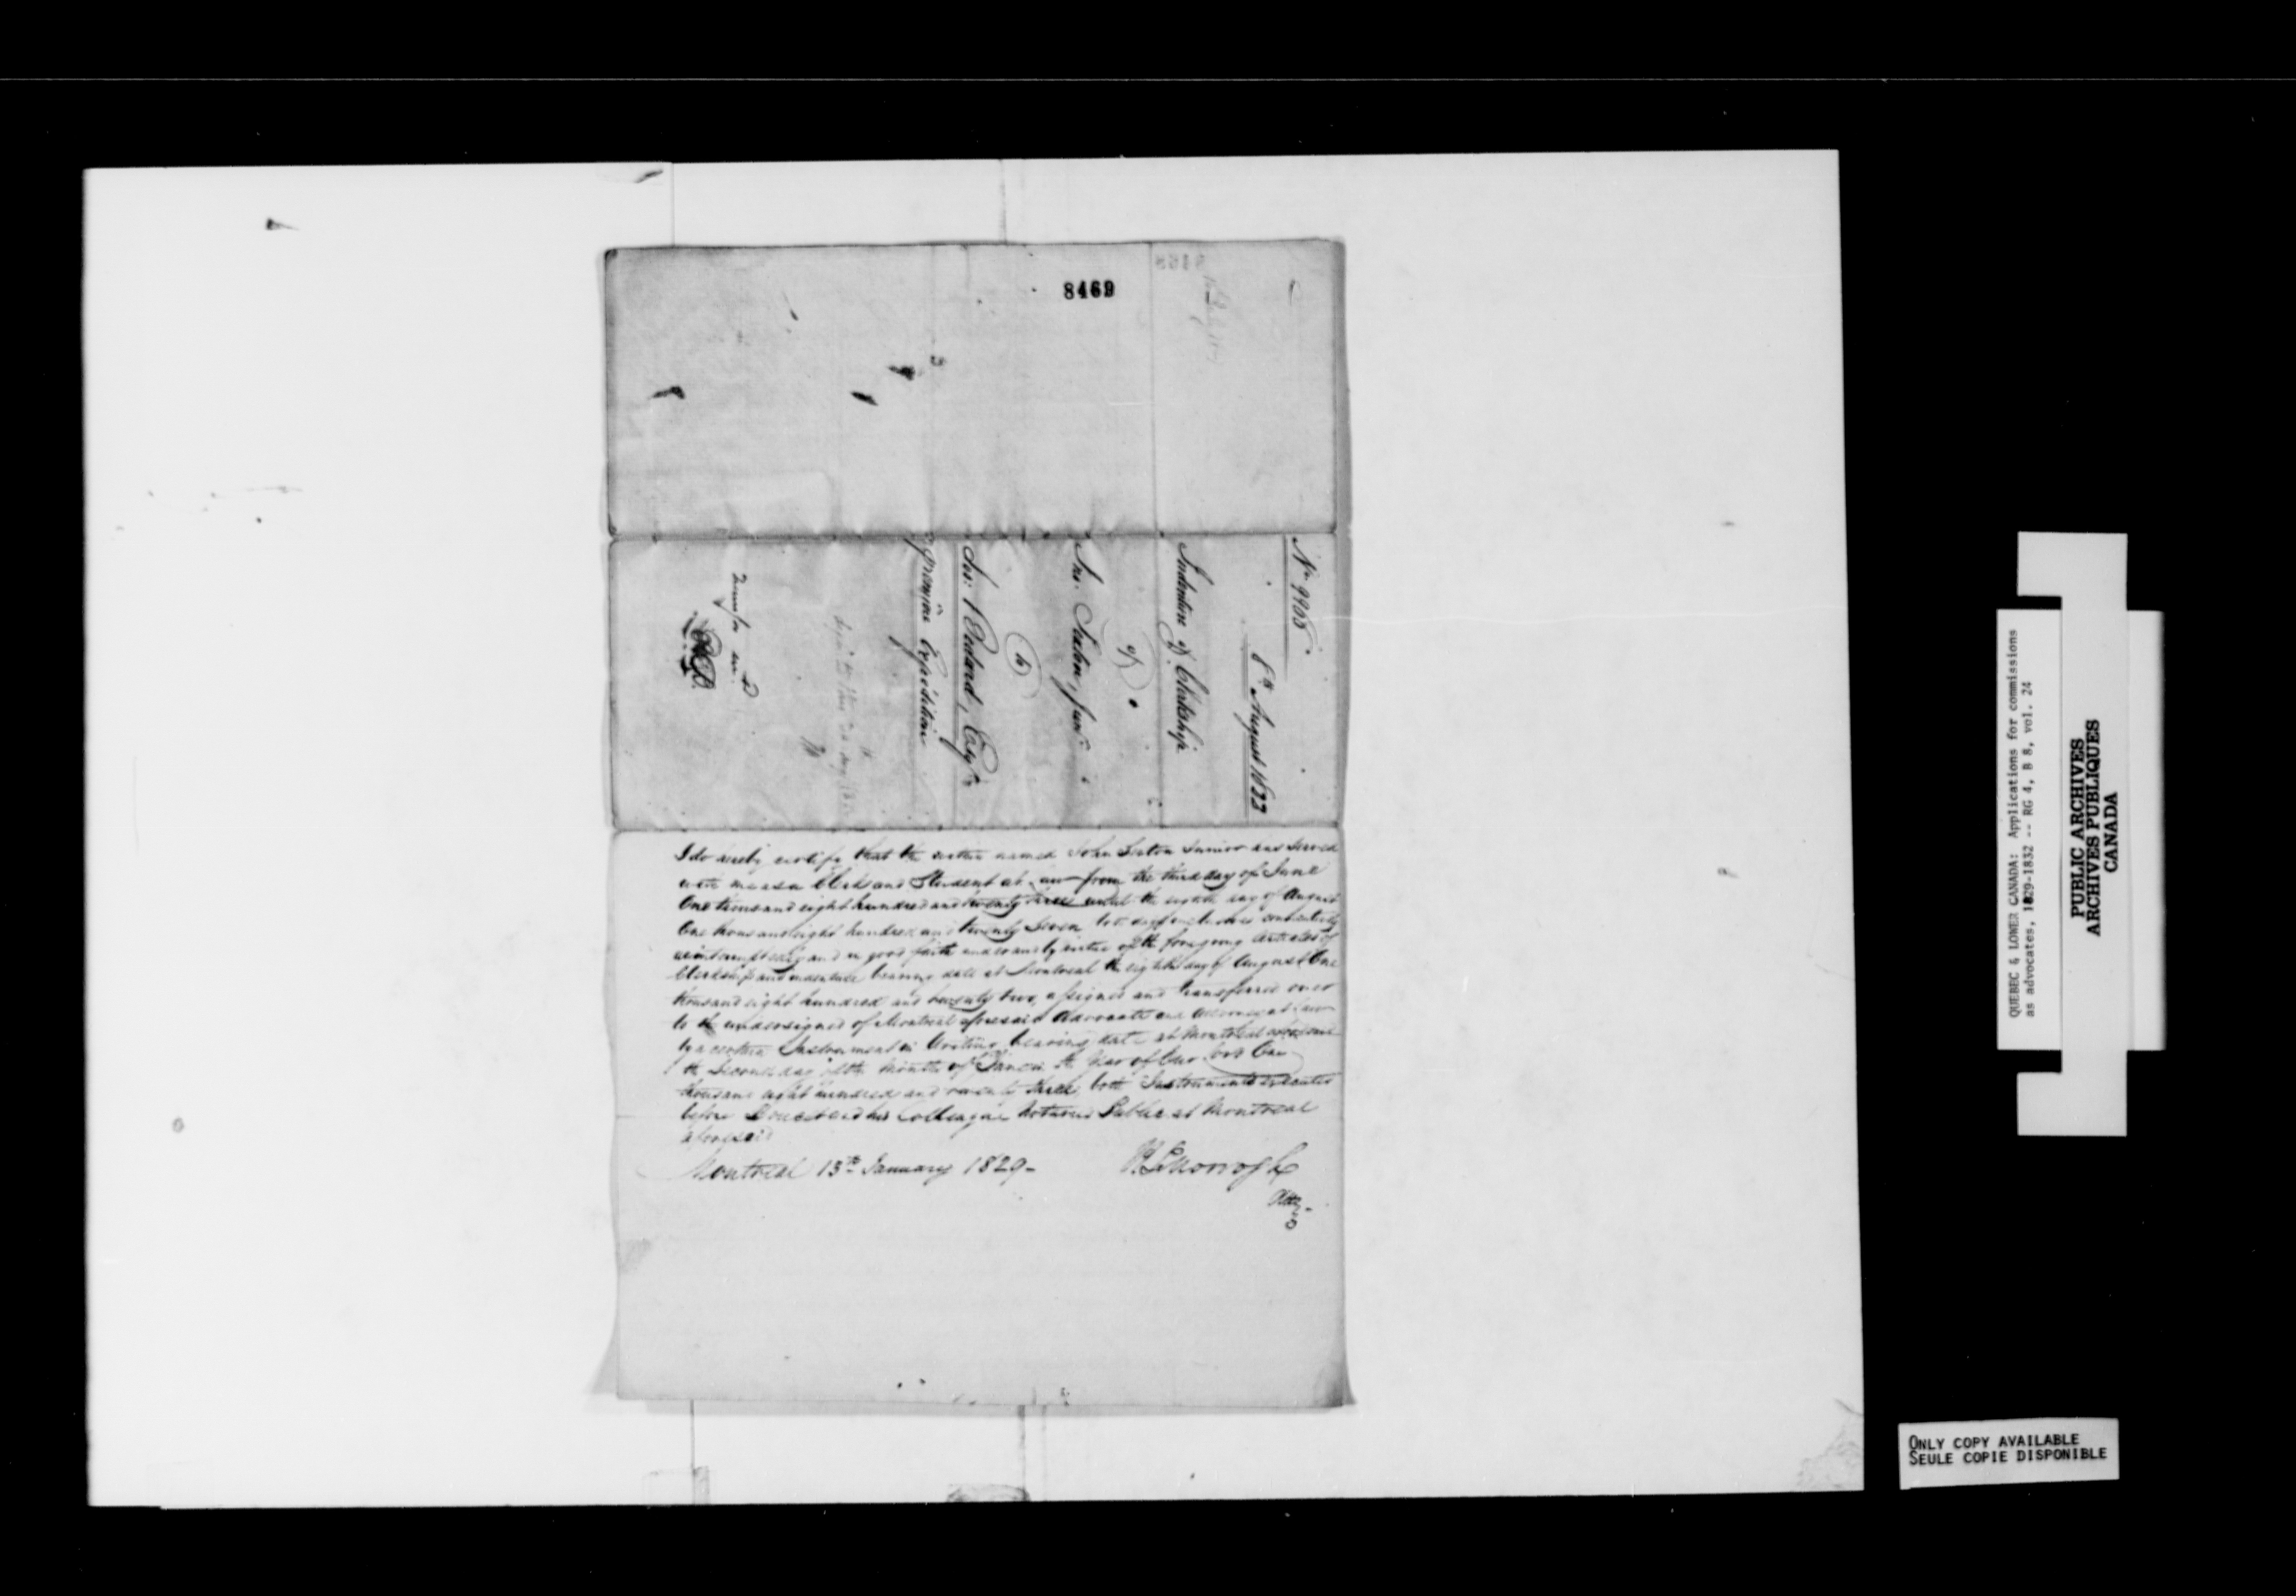 8469
No. 9908
8th August 1822
Indenture of Clerkship
of
Jno. Sexton, Junr.
to
Jos: Bedard, Esqr.
première Expédition
I do hereby certify that the within named John Sexton Junior has served
with me as a Clerk and Student at Law from the third day of June
One thousand eight hundred and twenty three until the eighth day of August
One thousand eight hundred and twenty Seven both days inclusive
and in good faith under and by virtue of the foregoing Articles of
Clerkship and Indenture bearing date at Montreal the eighth day of August One
thousand eight hundred and twenty two, assigned and transferred over
to the undersigned of Montreal aforesaid Advocate and Attorney at Law
by a certain Instrument in Writing bearing date at Montreal aforesaid
the Second day of the month of June in the Year of Our Lord One
thousand eight hundred and twenty three, both Instruments executed
before Doucet and his Colleague Notaries Public at Montreal
aforesaid
Montreal 15th January 1829-
Atty-
QUEBEC & LOWER CANADA: Applications for commissions
as advocates, 1829-1832 -- RG 4, B 8, vol. 24
PUBLIC ARCHIVES
ARCHIVES PUBLIQUES
CANADA
ONLY COPY AVAILABLE
SEULE COPIE DISPONIBLE